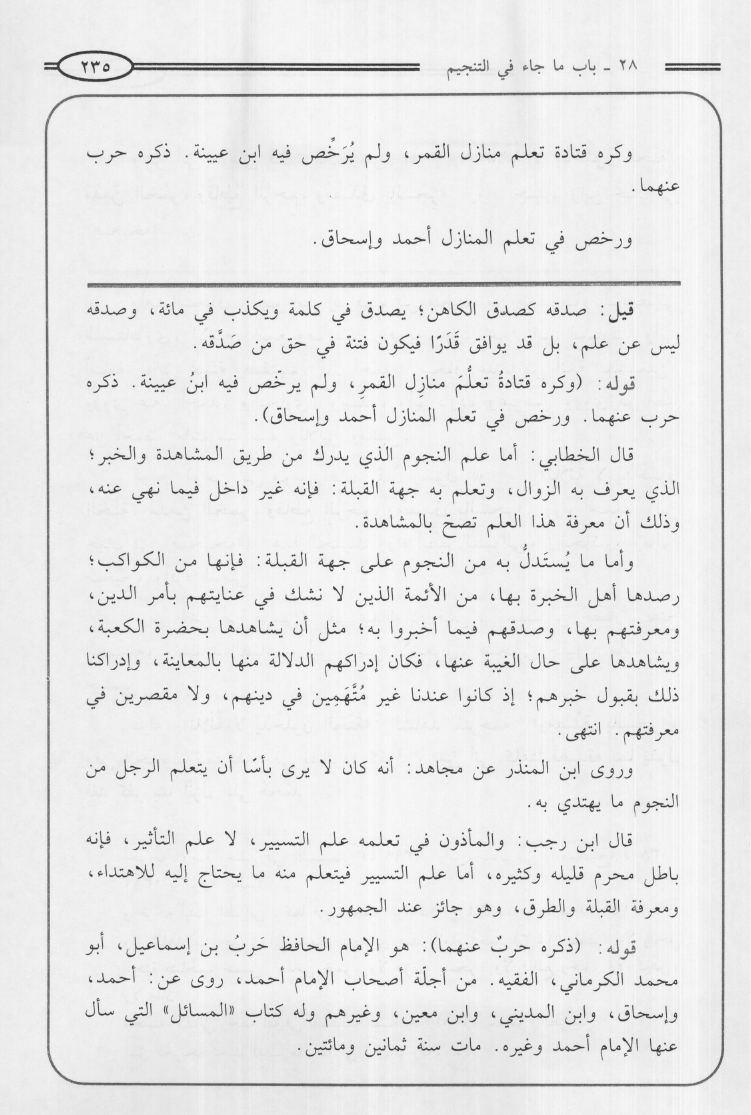 ٢٨ ـ باب ما جاء في التنجيم
٢٣٥
وكره قتادة تعلم منازل القمر، ولم يُرَخِّص فيه ابن عيينة. ذكره حرب
عنهما.
ورخص في تعلم المنازل أحمد وإسحاق.
قيل: صدقه كصدق الكاهن؛ يصدق في كلمة ويكذب في مائة، وصدقه
ليس عن علم، بل قد يوافق قَدَرًا فيكون فتنة في حق من صَدَّقه.
قوله: (وكره قتادةُ تعلُّمَ منازِل القمرِ، ولم يرخّص فيه ابنُ عيينة. ذكره
حرب عنهما. ورخص في تعلم المنازل أحمد وإسحاق).
قال الخطابي: أما علم النجوم الذي يدرك من طريق المشاهدة والخبر؛
الذي يعرف به الزوال، وتعلم به جهة القبلة: فإنه غير داخل فيما نهي عنه،
وذلك أن معرفة هذا العلم تصحّ بالمشاهدة.
وأما ما يُستَدلُّ به من النجوم على جهة القبلة: فإنها من الكواكب؛
رصدها أهل الخبرة بها، من الأئمة الذين لا نشك في عنايتهم بأمر الدين،
ومعرفتهم بها، وصدقهم فيما أخبروا به؛ مثل أن يشاهدها بحضرة الكعبة،
ويشاهدها على حال الغيبة عنها، فكان إدراكهم الدلالة منها بالمعاينة، وإدراكنا
ذلك بقبول خبرهم؛ إذ كانوا عندنا غير مُتَّهَمِين في دينهم، ولا مقصرين في
معرفتهم. انتهى.
وروى ابن المنذر عن مجاهد: أنه كان لا يرى بأسًا أن يتعلم الرجل من
النجوم ما يهتدي به.
قال ابن رجب: والمأذون في تعلمه علم التسيير، لا علم التأثير، فإنه
باطل محرم قليله وكثيره، أما علم التسيير فيتعلم منه ما يحتاج إليه للاهتداء،
ومعرفة القبلة والطرق، وهو جائز عند الجمهور.
قوله: (ذكره حربٌ عنهما): هو الإمام الحافظ حَربُ بن إسماعيل، أبو
محمد الكرماني، الفقيه. من أجلّة أصحاب الإمام أحمد، روى عن: أحمد،
وإسحاق، وابن المديني، وابن معين، وغيرهم وله كتاب «المسائل» التي سأل
عنها الإمام أحمد وغيره. مات سنة ثمانين ومائتين.